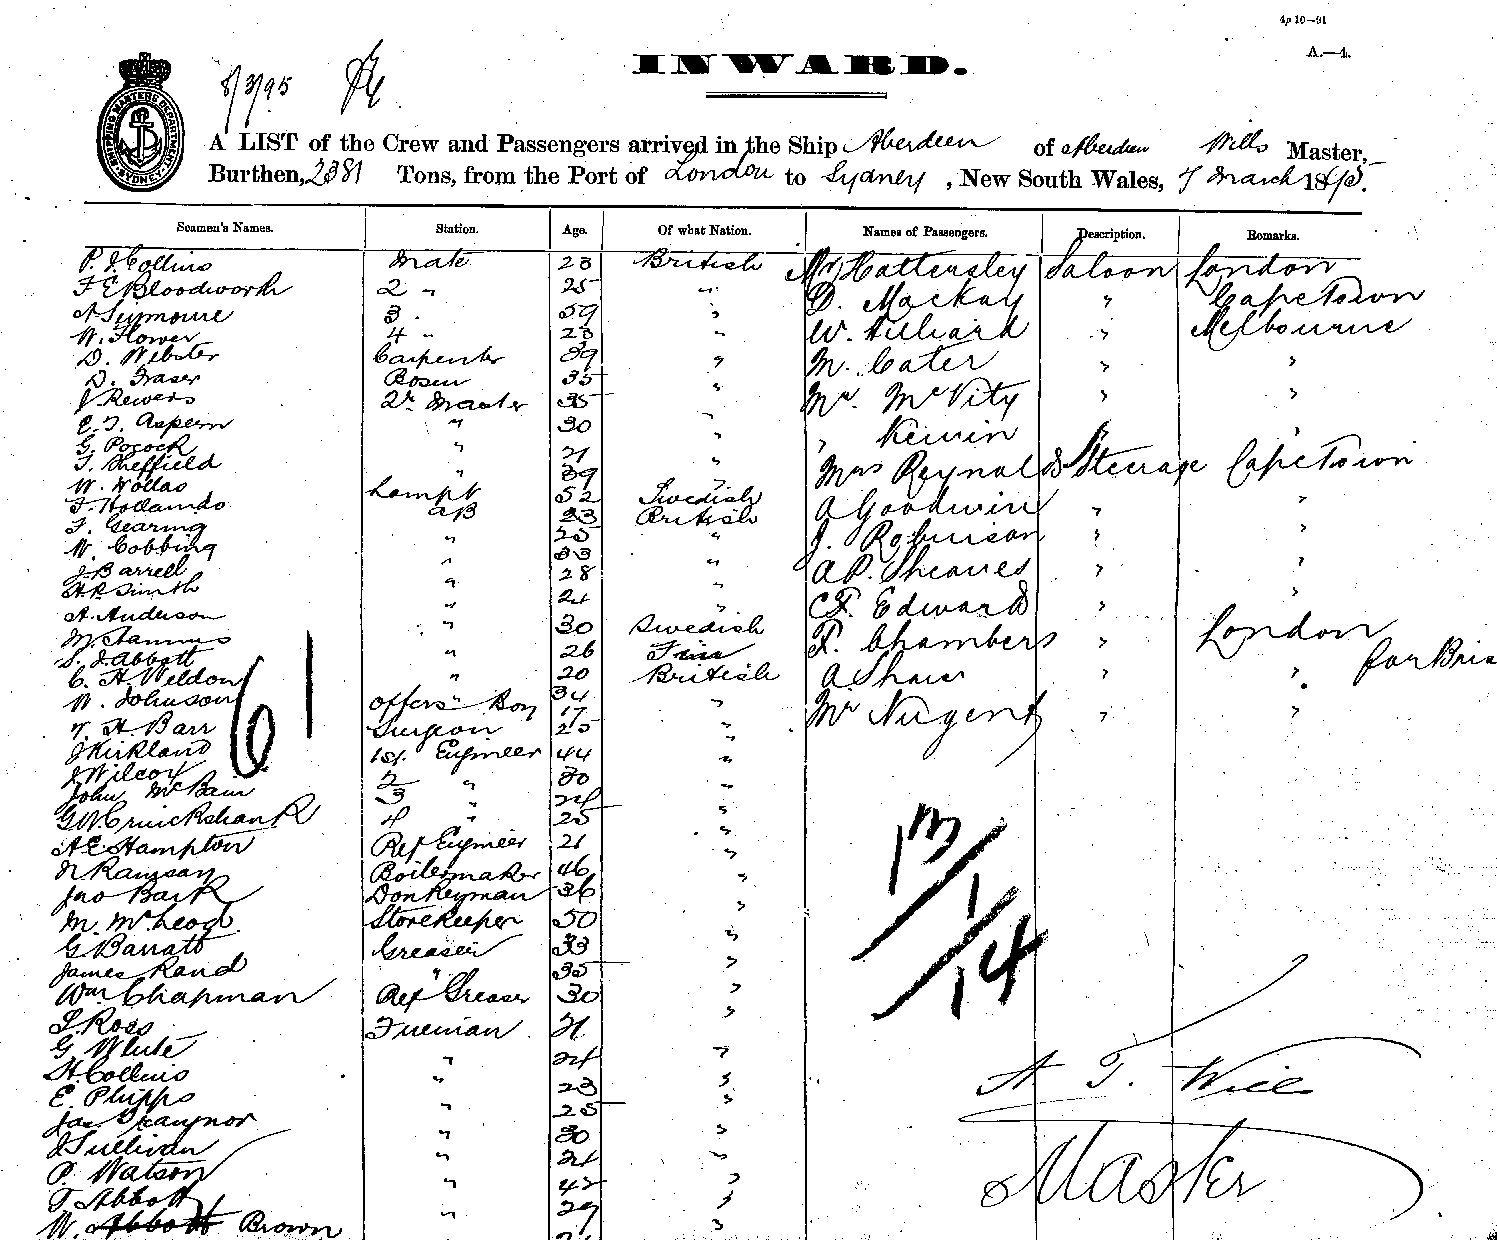 4p 10—91
A.—4.
INWARD.
8/3/95
SHIPPING MASTERS DEPARTMENT SYDNEY
A LIST of the Crew and Passengers arrived in the Ship Aberdeen of Aberdeen Wills Master,
Burthen, 2381 Tons, from the Port of London to Sydney, New South Wales, 7 March 1895.
Seamen's Names. Station. Age. Of what Nation. Names of Passengers. Description. Remarks.
P. J. Collins Mate 23 British Mr Hattersley Saloon London
F E Bloodworth 2 " 25 " D. Mackay " Capetown
A Seymoure 3 59 " W. Hilliard " Melbourne
W. Flower 4 " 23 "
D. Webster Carpenter 39 " M. Cater " "
D. Fraser Bosun 35 "
J Rewers 2r Master 35 Mr. McVity " "
C. J. Aspern " 30 " " Kewin " "
G. Pocock " 21 "
J. Sheffield " 39 " Mrs Reynolds Steerage Capetown
W. Wollas Lampt 52 Swedish
F. Hollando AB 23 British A Goodwin " "
F. Gearing " 25 " J. Robinson " "
W. Cobbing " 33
J. Barrell " 28 " A P. Sheaves " "
H. P. Smith " 21 " C F. Edwards " "
A. Anderson " 30 Swedish F. Chambers " London
M. Hannus " 26 Finn
S. J. Abbott " 20 British A Shaw " " for Bris
C. H. Weldon 34
W. Johnson offers Boy 17 " Mr Nugent " "
T. H. Barr Surgeon 25 "
J Kirkland 1st. Engineer 44 "
J Wilcox 2 " 30 "
John McBain 3 " 24 "
G W. Cruickshank 4 " 25 "
A E Hampton Ref Engineer 21 "
Ramsay Boilermaker 46 "
Jno Bark Donkeyman 36 "
M. McLeod Storekeeper 50 "
G Barratt Greaser 33 "
James Rand " 35 "
Wm Chapman Ref Greaser 30 "
Ross Fireman 21 "
G. White " 24 "
H. Collins " 23 "
E. Phipps " 25 "
Jas Traynor
J Sullivan " 30 "
P. Watson " 24 "
T Abbott " 42 "
W. Abbott Brown " 29 "
61
13/1/14
A. T. Will
Master